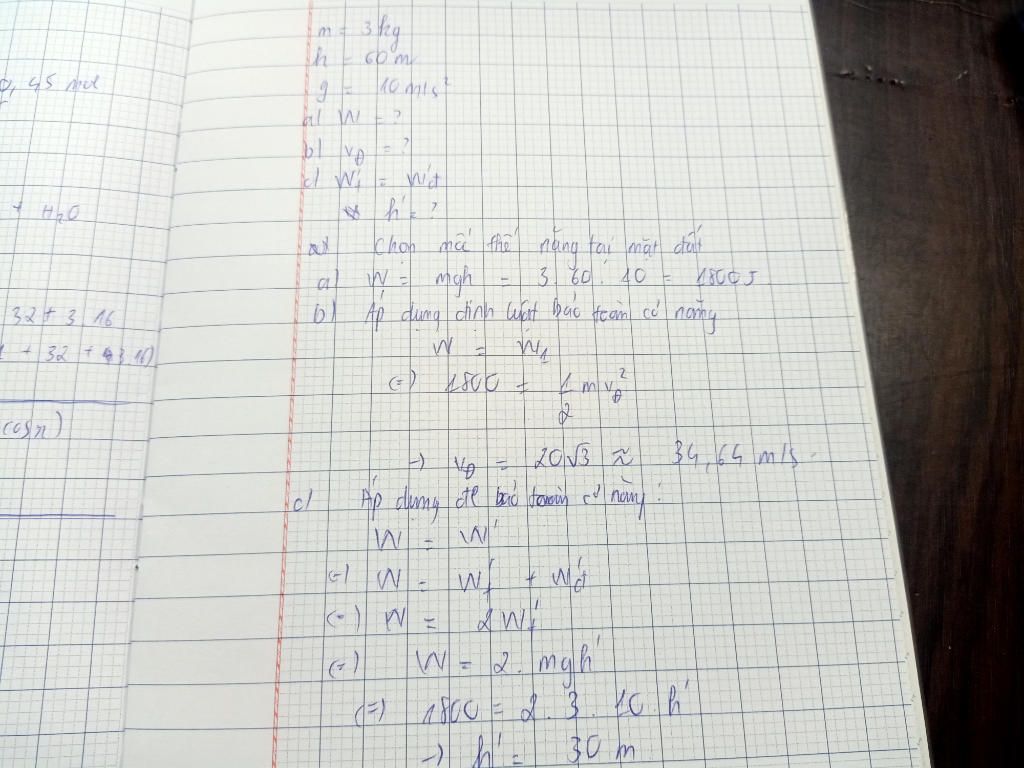 0,45 mol
+ H₂O
32 + 3 16
+ 32 + 3.16)
cosπ)
m = 3 kg
h = 60 m
g = 10 m/s²
a) W = ?
b) vđ = ?
c) Wt' = Wđ'
h' = ?
Chọn mốc thế năng tại mặt đất
a) W = mgh = 3.60.10 = 1800 J
b) Áp dụng định luật bảo toàn cơ năng
W = W₁
(=) 1800 = 1/2 m vđ²
→ vđ = 20√3 ≈ 34,64 m/s
c) Áp dụng đl bảo toàn cơ năng:
W = W'
(=) W = Wt' + Wđ'
(=) W = 2Wt'
(=) W = 2.mgh'
(=) 1800 = 2.3.10.h'
→ h' = 30 m